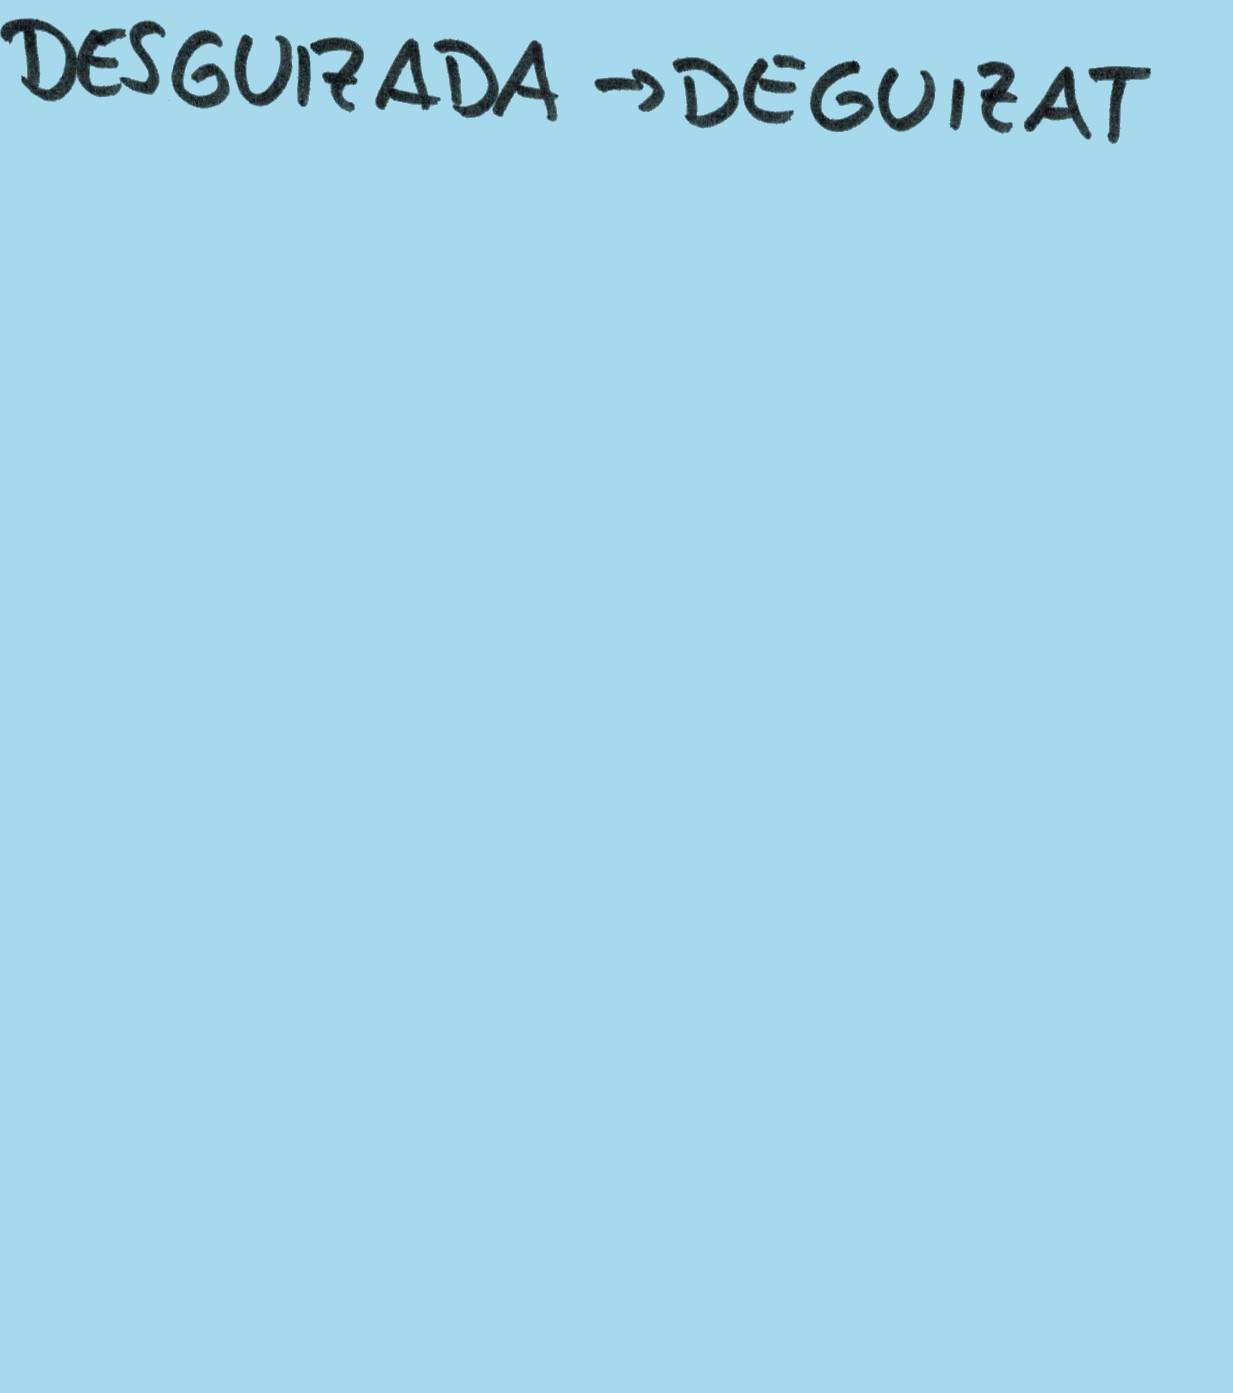 DESGUIZADA → DEGUIZAT